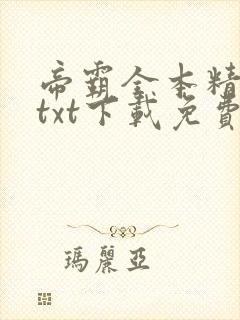 帝霸全本精
txt下載免費
瑪麗亞